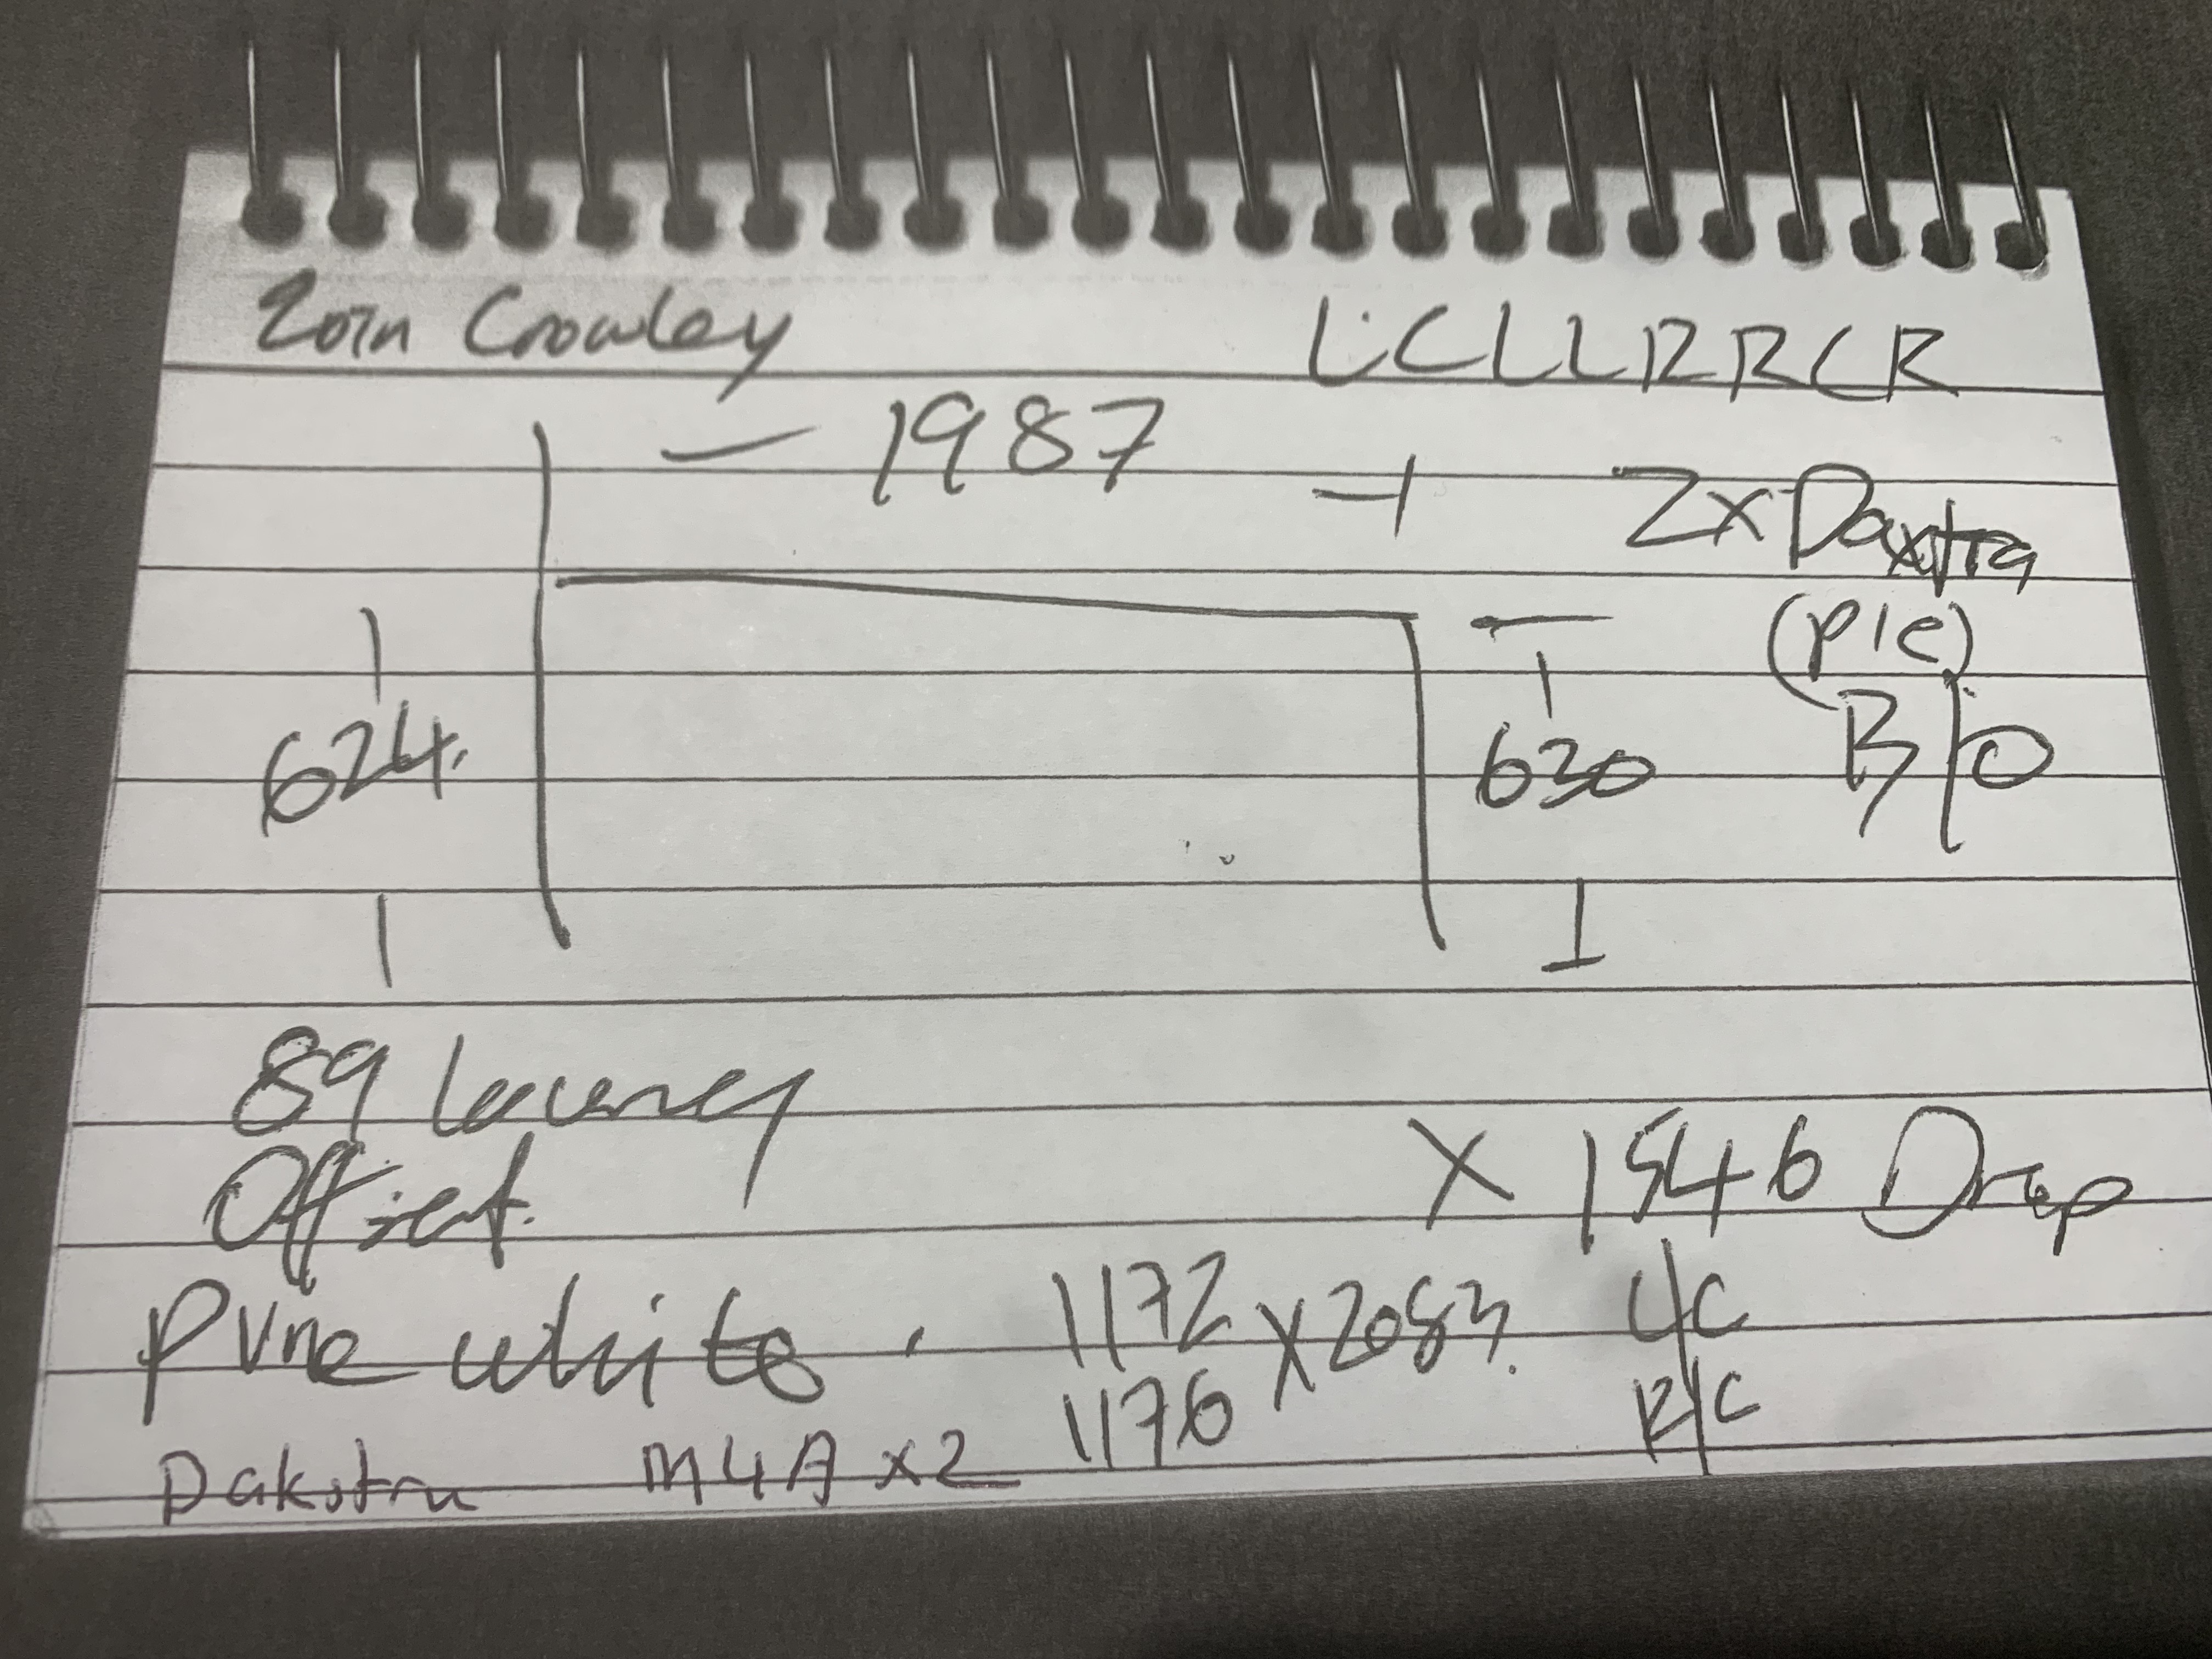 Crowley LCLLRRCR
1987
2x Daxtra
(P/e)
624. 630 B/O
89 louvres
Offset. X 1546 Drop
Pure white. 1172 x 2083. L/C
1176 R/C
Dakstra M4A x2